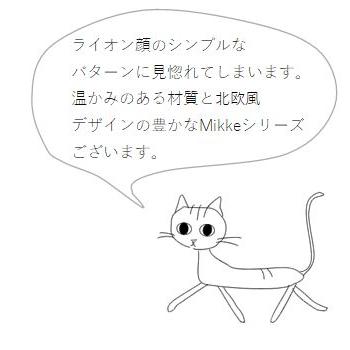 ライオン顔のシンプルな
パターンに見惚れてしまいます。
温かみのある材質と北欧風
デザインの豊かなMikkeシリーズ
ございます。